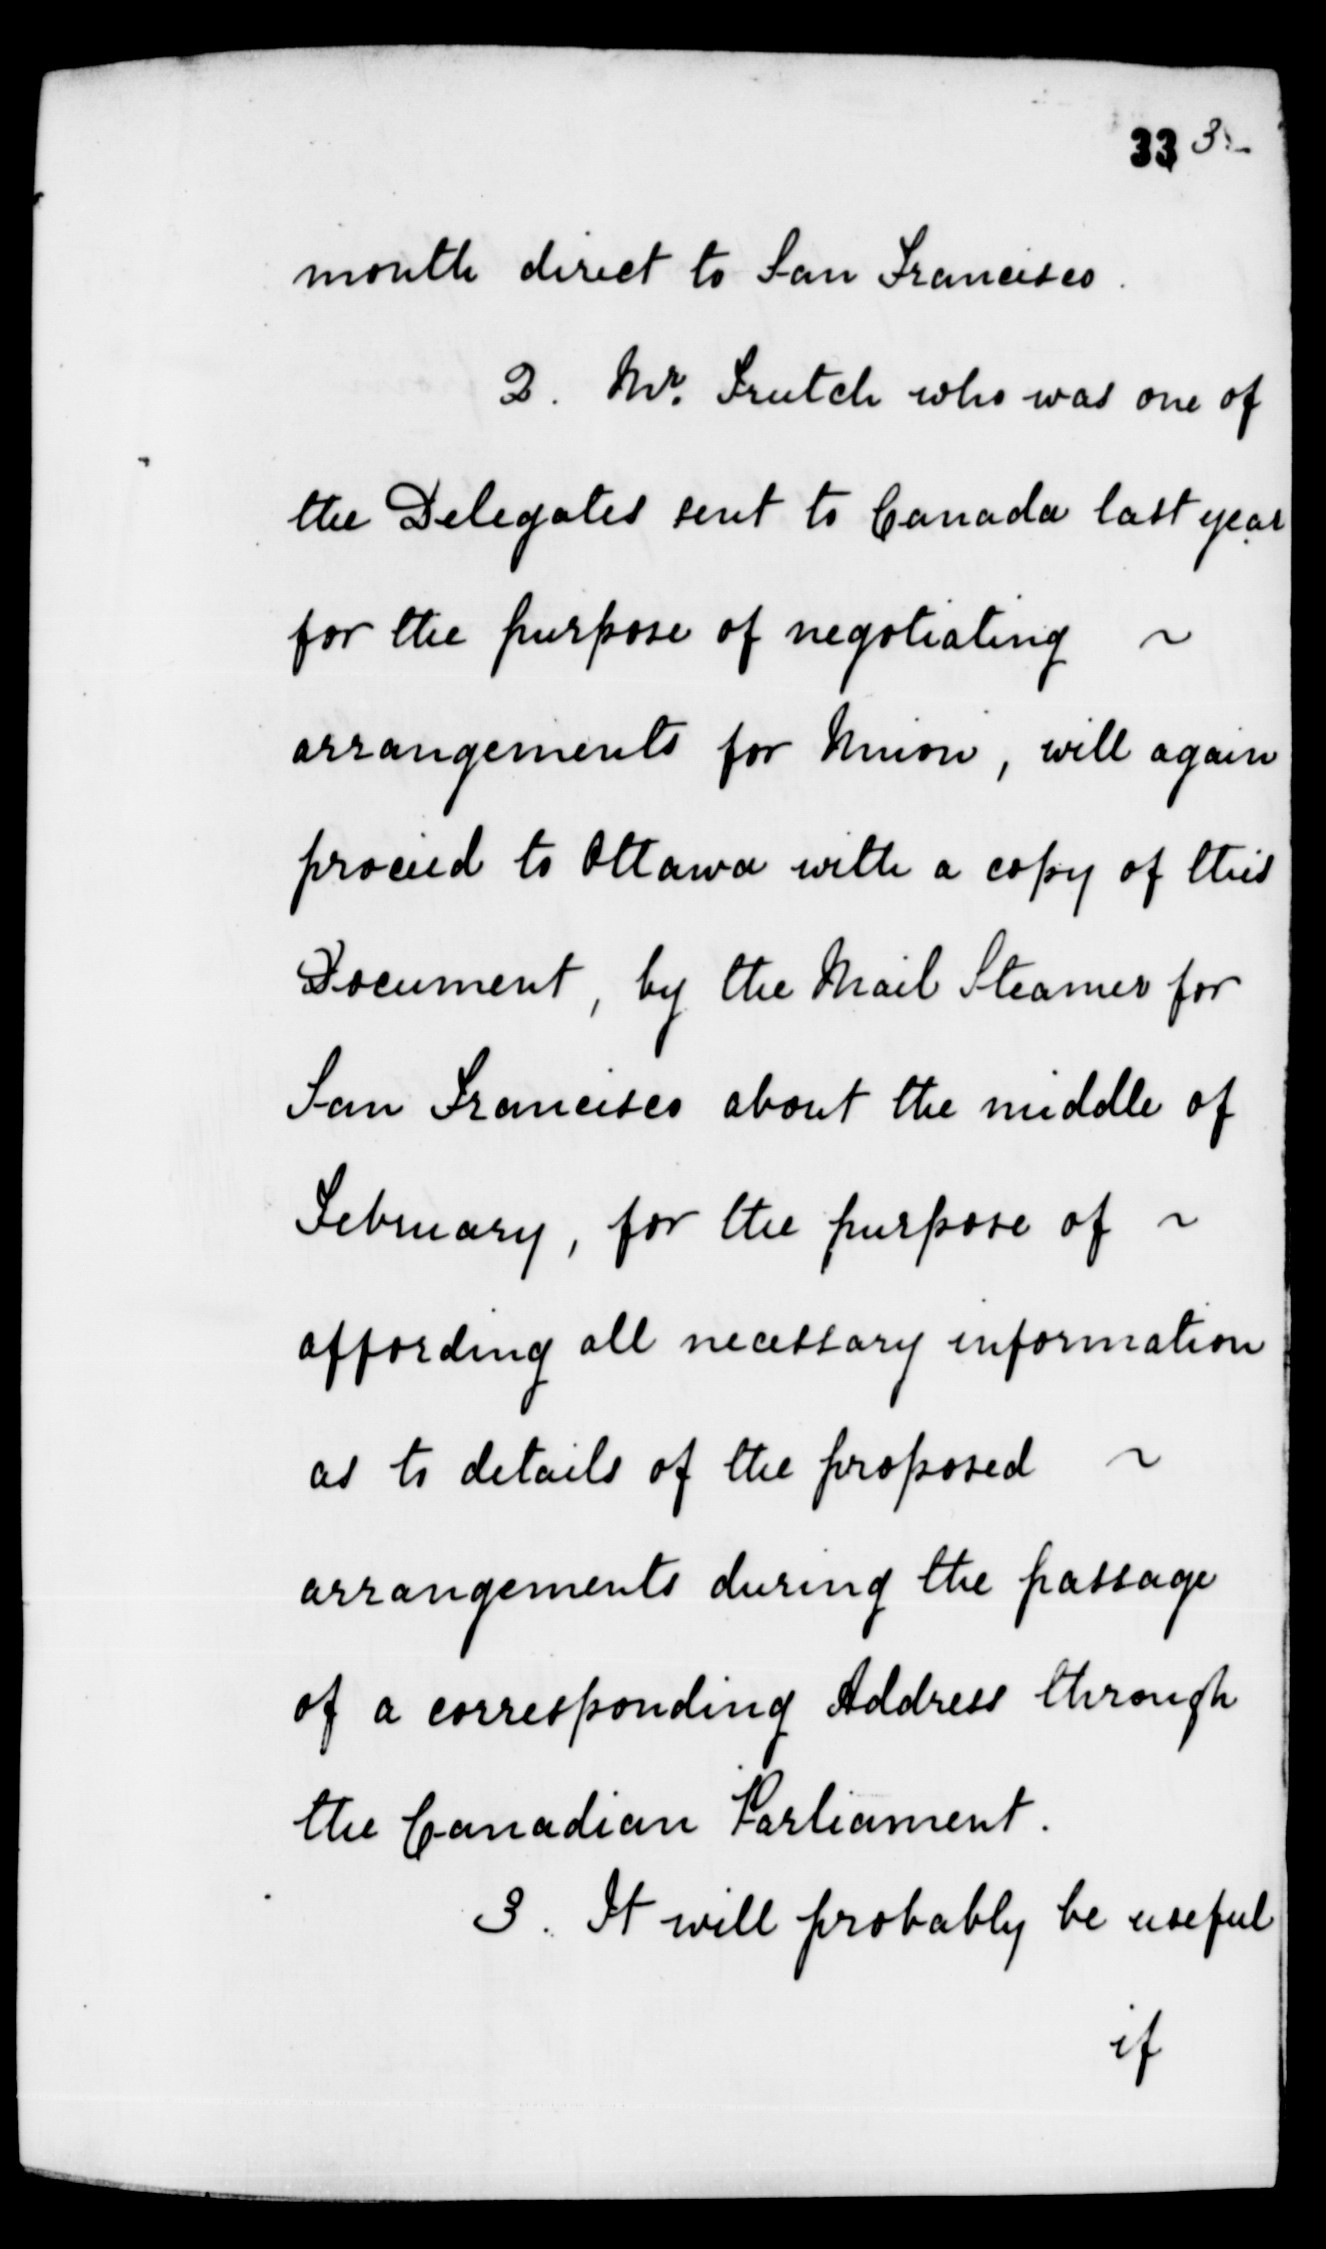 33 3.-
month direct to San Francisco.
2. Mr. Trutch who was one of
the Delegates sent to Canada last year
for the purpose of negotiating ~
arrangements for Union, will again
proceed to Ottawa with a copy of this
Document, by the Mail Steamer for
San Francisco about the middle of
February, for the purpose of ~
affording all necessary information
as to details of the proposed ~
arrangements during the passage
of a corresponding Address through
the Canadian Parliament.
3. It will probably be useful
if